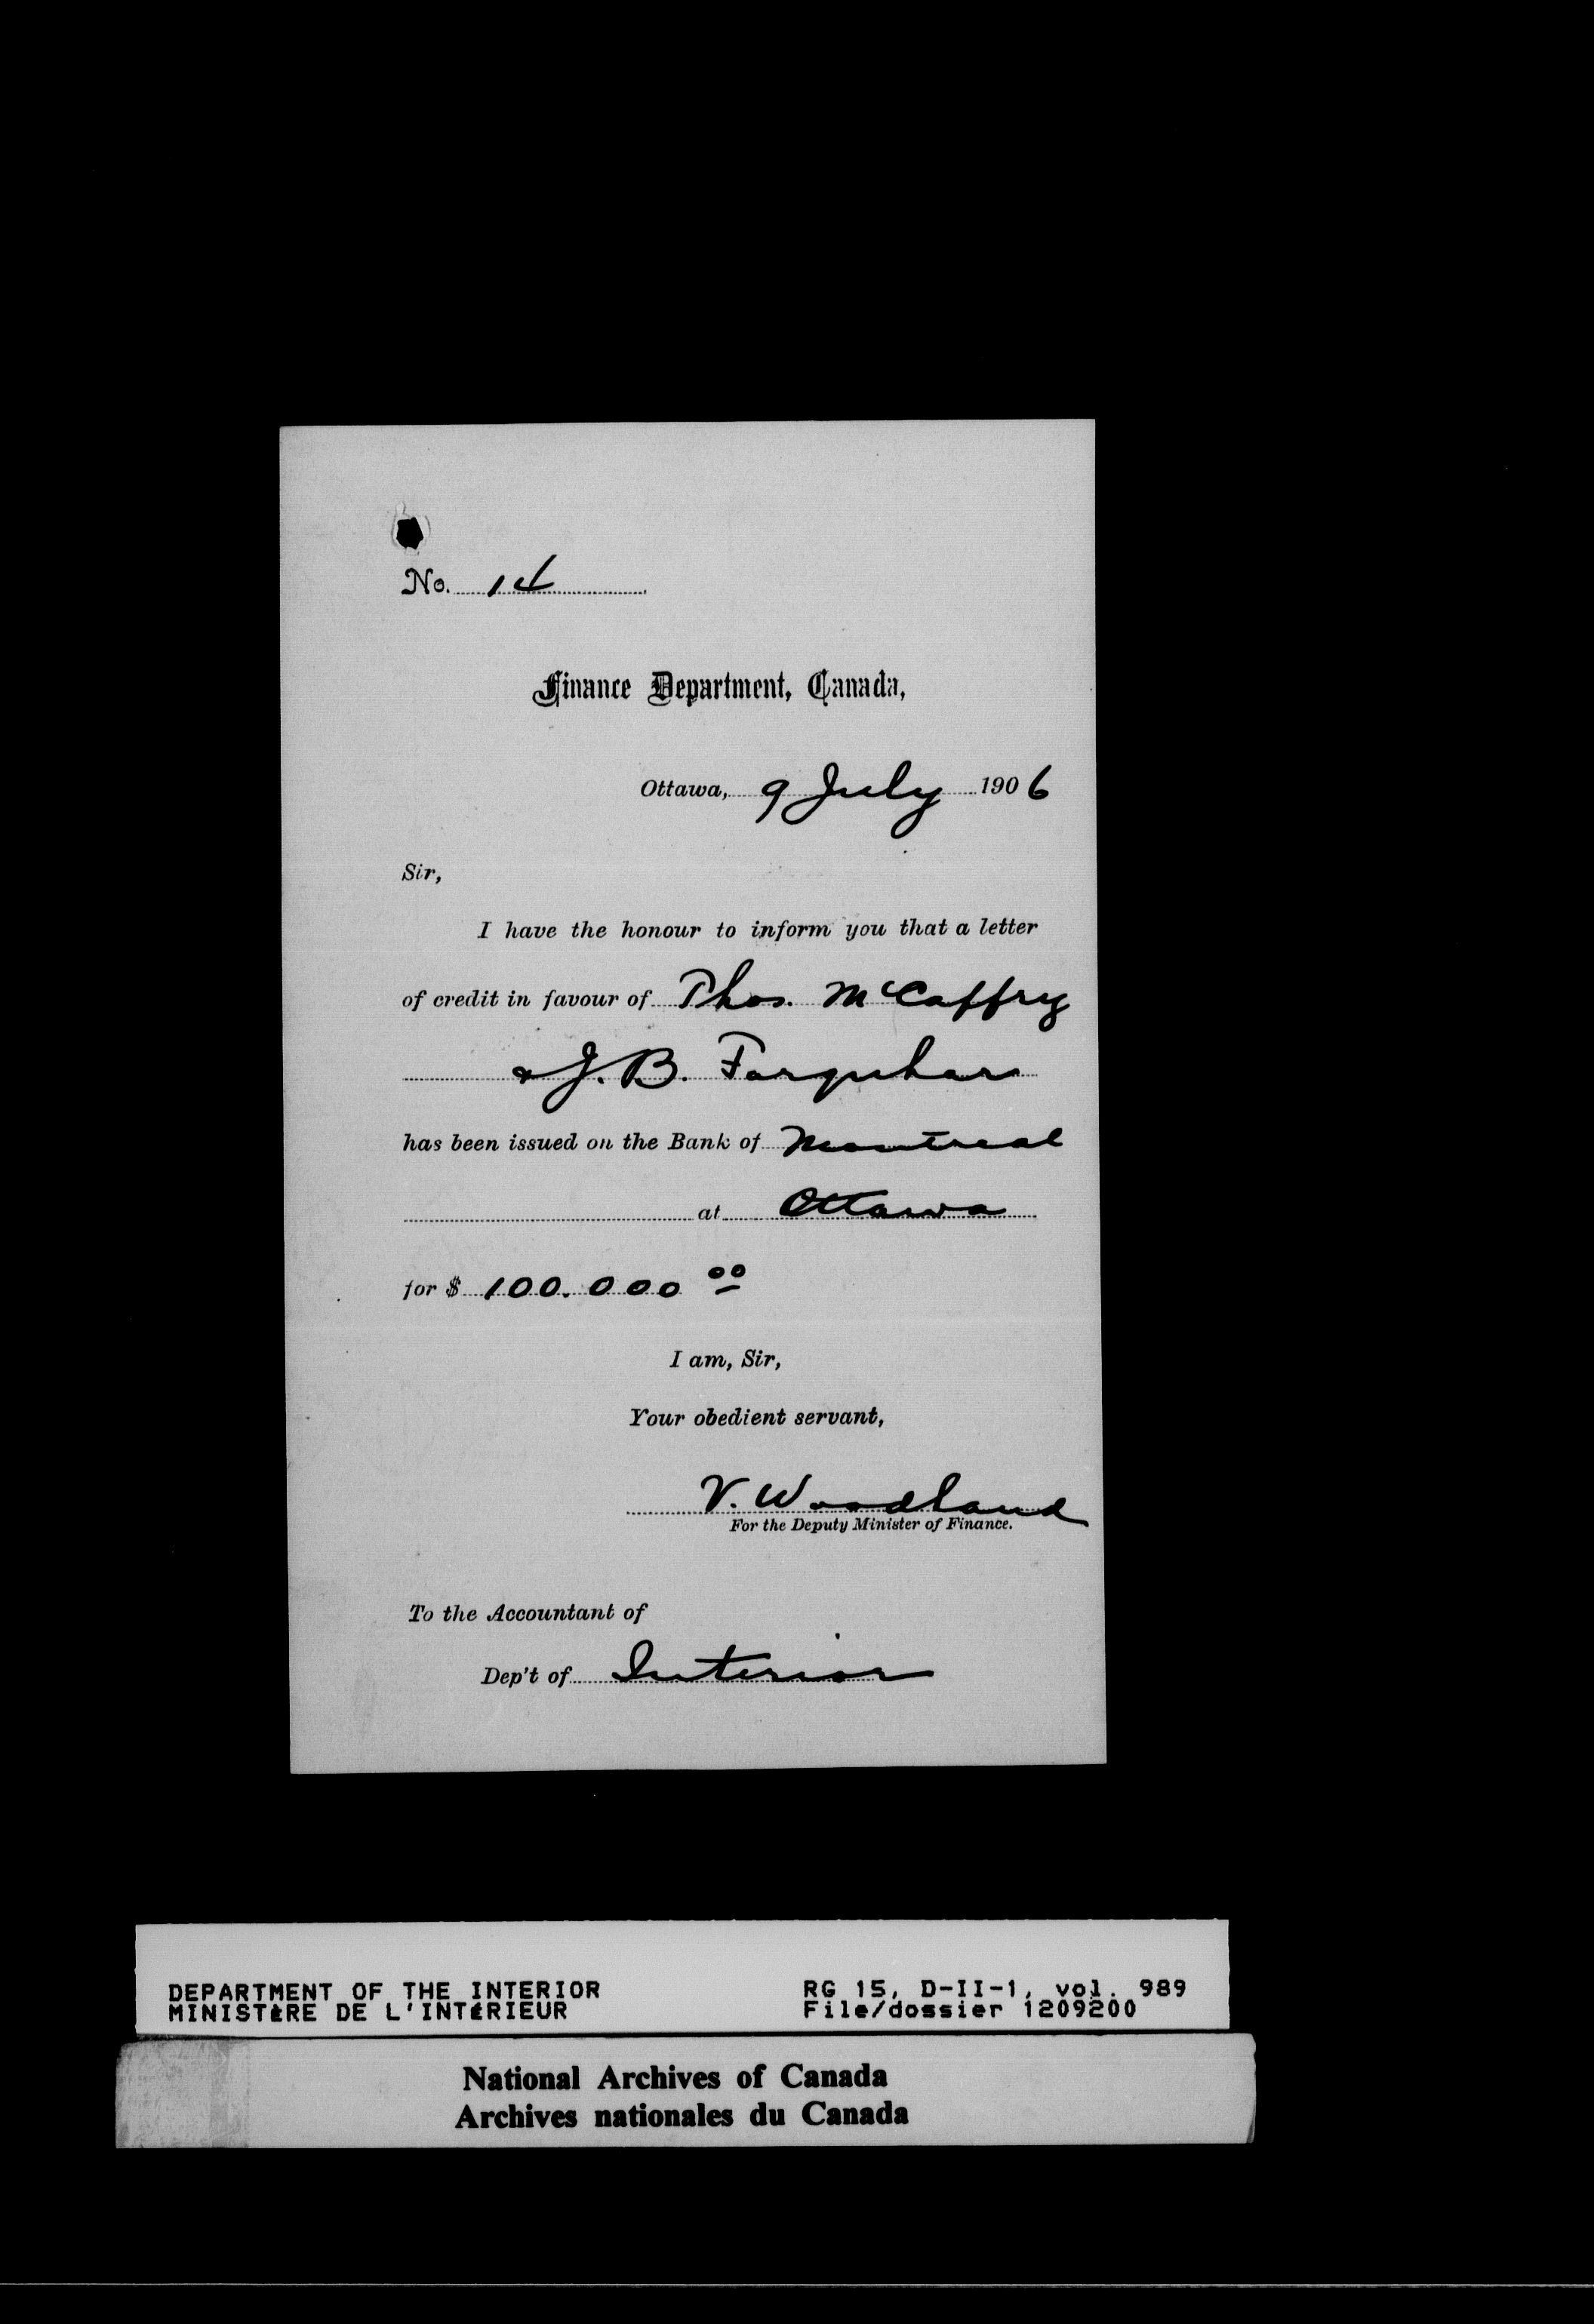 No. 14
Finance Department, Canada,
Ottawa, 9 July 1906
Sir,
I have the honour to inform you that a letter
of credit in favour of Thos. McCaffry
& J. B. Farquhar
has been issued on the Bank of Montreal
at Ottawa
for $ 100.000 00
I am, Sir,
Your obedient servant,
V. Woodland
For the Deputy Minister of Finance.
To the Accountant of
Dep't of Interior
DEPARTMENT OF THE INTERIOR
MINISTÈRE DE L'INTÉRIEUR
RG 15, D-II-1, vol. 989
File/dossier 1209200
National Archives of Canada
Archives nationales du Canada